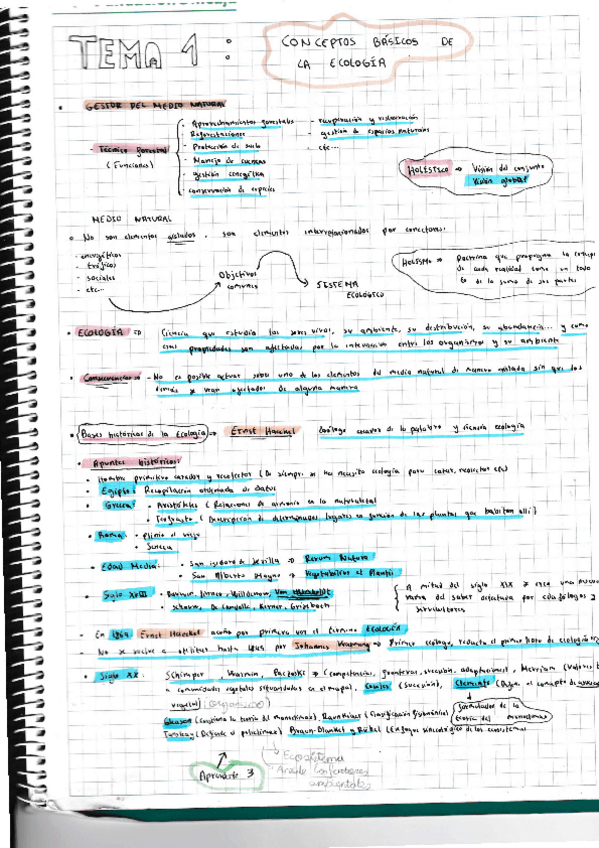 TEMA 1:
CONCEPTOS BÁSICOS DE
LA ECOLOGÍA
• GESTOR DEL MEDIO NATURAL
- Técnico forestal
(Funciones)
- Aprovechamientos forestales
Reforestaciones
- Protección de suelo
- Manejo de cuencas
- gestión cinegética
- conservación de especies
- recuperación y restauración
gestión de espacios naturales
- etc...
HOLÍSTICO → Visión del conjunto
Visión global
MEDIO NATURAL
• No son elementos aislados, son elementos interrelacionados por conectores:
- energéticos
- tróficos
- sociales
- etc...
Objetivos
comunes
SISTEMA
ECOLÓGICO
HOLISMO → Doctrina que propugna la concep
de cada realidad como un todo
de la suma de sus partes
• ECOLOGÍA ⇒ Ciencia que estudia los seres vivos, su ambiente, su distribución, su abundancia... y como
esas propiedades son afectadas por la interacción entre los organismos y su ambiente
• Consecuencias → - No es posible actuar sobre uno de los elementos del medio natural de manera aislada sin que los
demás se vean afectados de alguna manera
• Bases históricas de la Ecología ⇒ Ernst Haeckel zoólogo creador de la palabra y ciencia ecología
• Apuntes históricos:
• Hombre primitivo cazador y recolector (De siempre se ha necesito ecología para cazar, recolectar etc)
• Egipto: Recopilación ordenada de datos
• Grecia: • Aristóteles (Relaciones de armonía en la naturaleza)
• Teofrasto (Descripción de determinados lugares en función de las plantas que habitan allí)
• Roma: • Plinio el viejo
• Seneca
• Edad Media: • San isidoro de Sevilla → Rerum Natura
• San Alberto Magno → Vegetabilius et Plantis
• Siglo XVIII • Willdenow, Von Humboldt
• Schouw, De Candolle, Kerner, Grisebach
A mitad del siglo XIX se crea una nueva
rama del saber detectada por edafólogos y
silvicultores
• En 1869 Ernst Haeckel acuñó por primera vez el término ECOLOGÍA
- No se vuelve a utilizar hasta 1895 por Johannes Warming → Primer ecólogo, redacta el primer libro de ecología
• Siglo XX: Schimper, Warmin, Paczoski → (competencias, fronteras, sucesión, adaptaciones), Merriam
comunidades vegetales situandolas en el mapa), Cowles (Sucesión), Clements (Define el concepto de
vegetal) (organismo)
formulador de la
teoría del monoclimax
Gleason (cuestiona la teoría del monoclimax), Raunkiaer (clasificación fisionómica)
Tansley (Defiende el policlimax) Braun-Blanket y Rübel (Enfoque sinecológico de los ecosistemas
Ecosistema
ambientales
Apartado 3